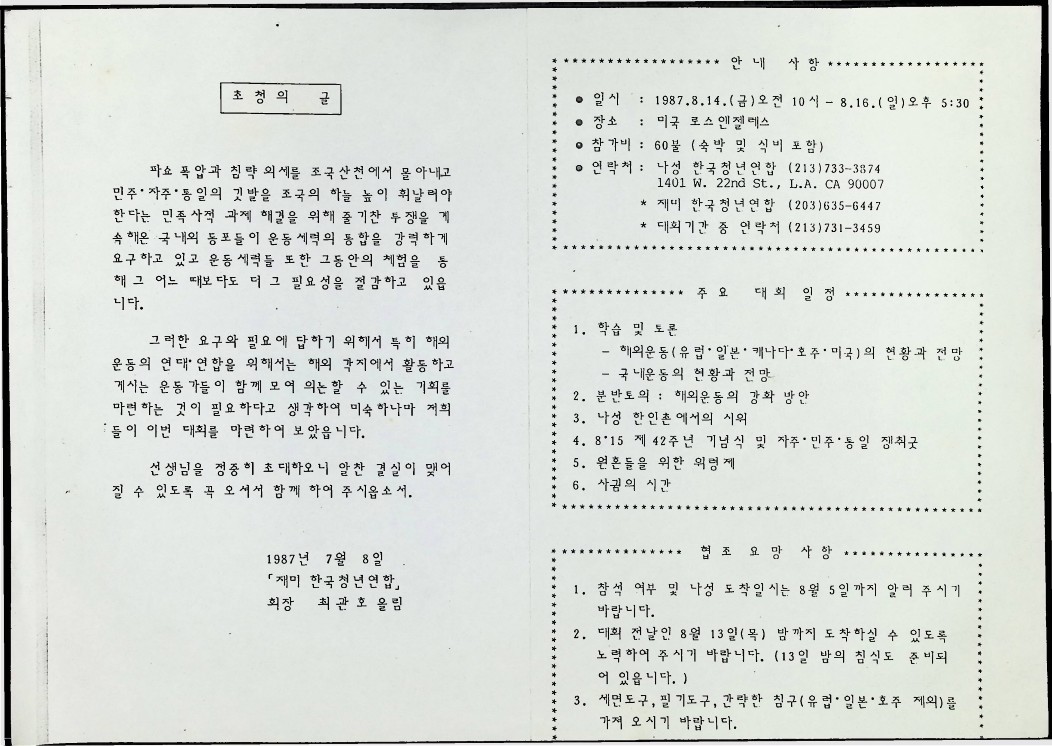 초 청 의 글
파쇼 폭압과 침략 외세를 조국산천에서 몰아내고
민주·자주·통일의 깃발을 조국의 하늘 높이 휘날려야
한다는 민족사적 과제 해결을 위해 줄기찬 투쟁을 계
속해온 국내외 동포들이 운동세력의 통합을 강력하게
요구하고 있고 운동세력들 또한 그동안의 체험을 통
해 그 어느 때보다도 더 그 필요성을 절감하고 있읍
니다.
그러한 요구와 필요에 답하기 위해서 특히 해외
운동의 연대·연합을 위해서는 해외 각지에서 활동하고
계시는 운동가들이 함께 모여 의논할 수 있는 기회를
마련하는 것이 필요하다고 생각하여 미숙하나마 저희
들이 이번 대회를 마련하여 보았읍니다.
선생님을 정중히 초대하오니 알찬 결실이 맺어
질 수 있도록 꼭 오셔서 함께 하여 주시옵소서.
1987년 7월 8일
「재미 한국청년연합」
회장 최관호 올림
****************** 안내 사항 ******************
● 일시 : 1987.8.14.(금)오전 10시 - 8.16.(일)오후 5:30
● 장소 : 미국 로스엔젤레스
● 참가비 : 60불 (숙박 및 식비 포함)
● 연락처 : 나성 한국청년연합 (213)733-3874
1401 W. 22nd St., L.A. CA 90007
* 재미 한국청년연합 (203)635-6447
* 대회기간 중 연락처 (213)731-3459
*************** 주요 대회 일정 ****************
1. 학습 및 토론
- 해외운동(유럽·일본·캐나다·호주·미국)의 현황과 전망
- 국내운동의 현황과 전망
2. 분반토의 : 해외운동의 강화 방안
3. 나성 한인촌에서의 시위
4. 8·15 제 42주년 기념식 및 자주·민주·통일 쟁취굿
5. 원혼들을 위한 위령제
6. 사귐의 시간
*************** 협조 요망 사항 ****************
1. 참석 여부 및 나성 도착일시는 8월 5일까지 알려 주시기
바랍니다.
2. 대회 전날인 8월 13일(목) 밤까지 도착하실 수 있도록
노력하여 주시기 바랍니다. (13일 밤의 침식도 준비되
어 있읍니다.)
3. 세면도구,필기도구,간략한 침구(유럽·일본·호주 제외)를
가져 오시기 바랍니다.